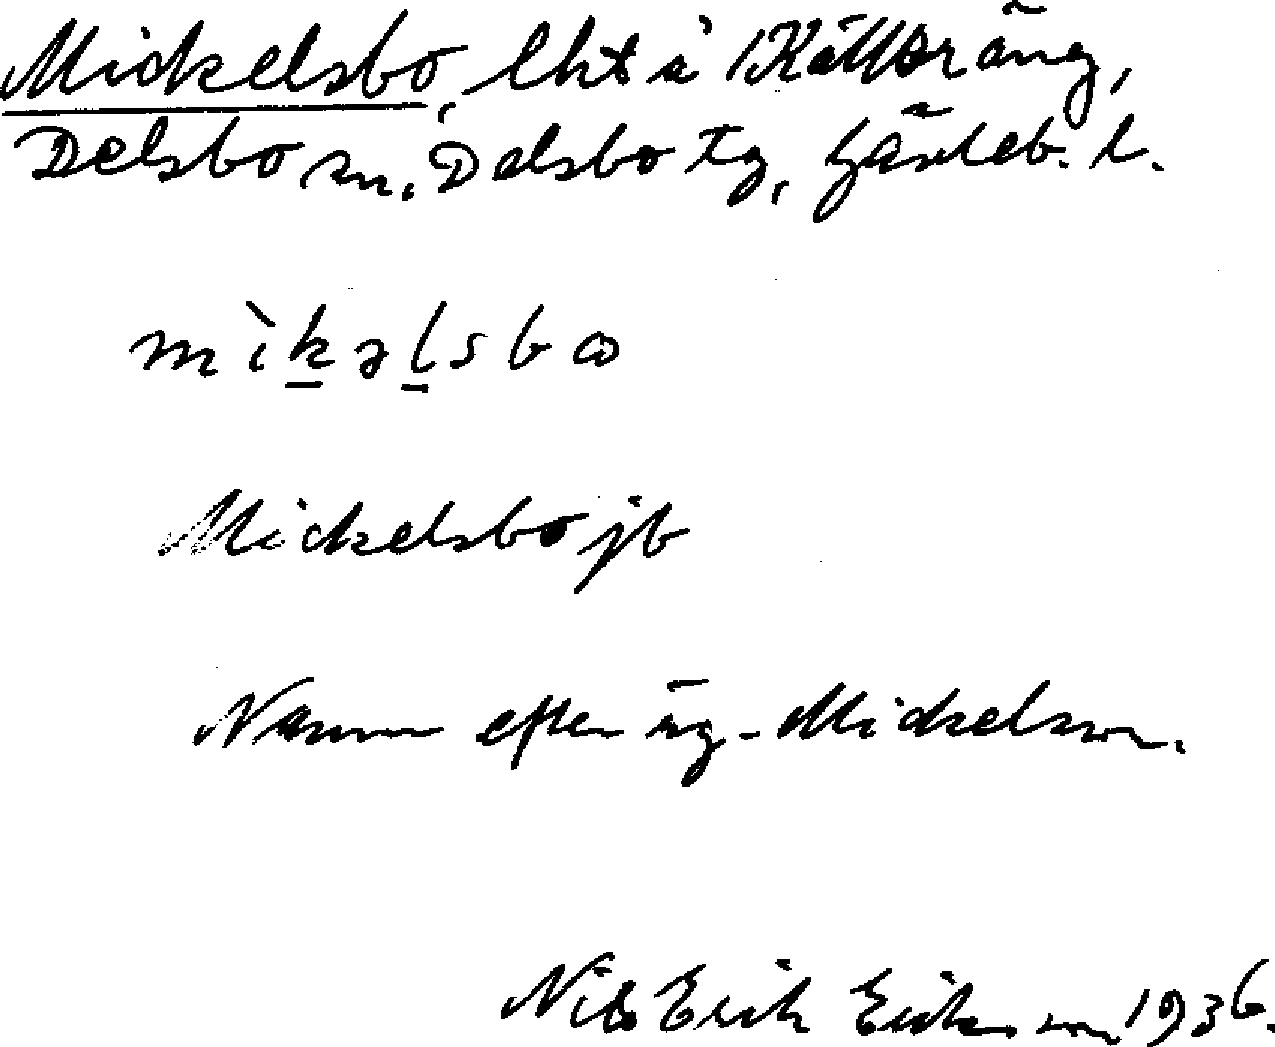 Mickelsbo, lht å Källeräng,
Delsbo sn, Delsbo tg, Gävleb. l.
mìkəlsbω
Mickelsbo jb
Namn efter äg. Mickelson.
Nils Erik Erikson 1936.